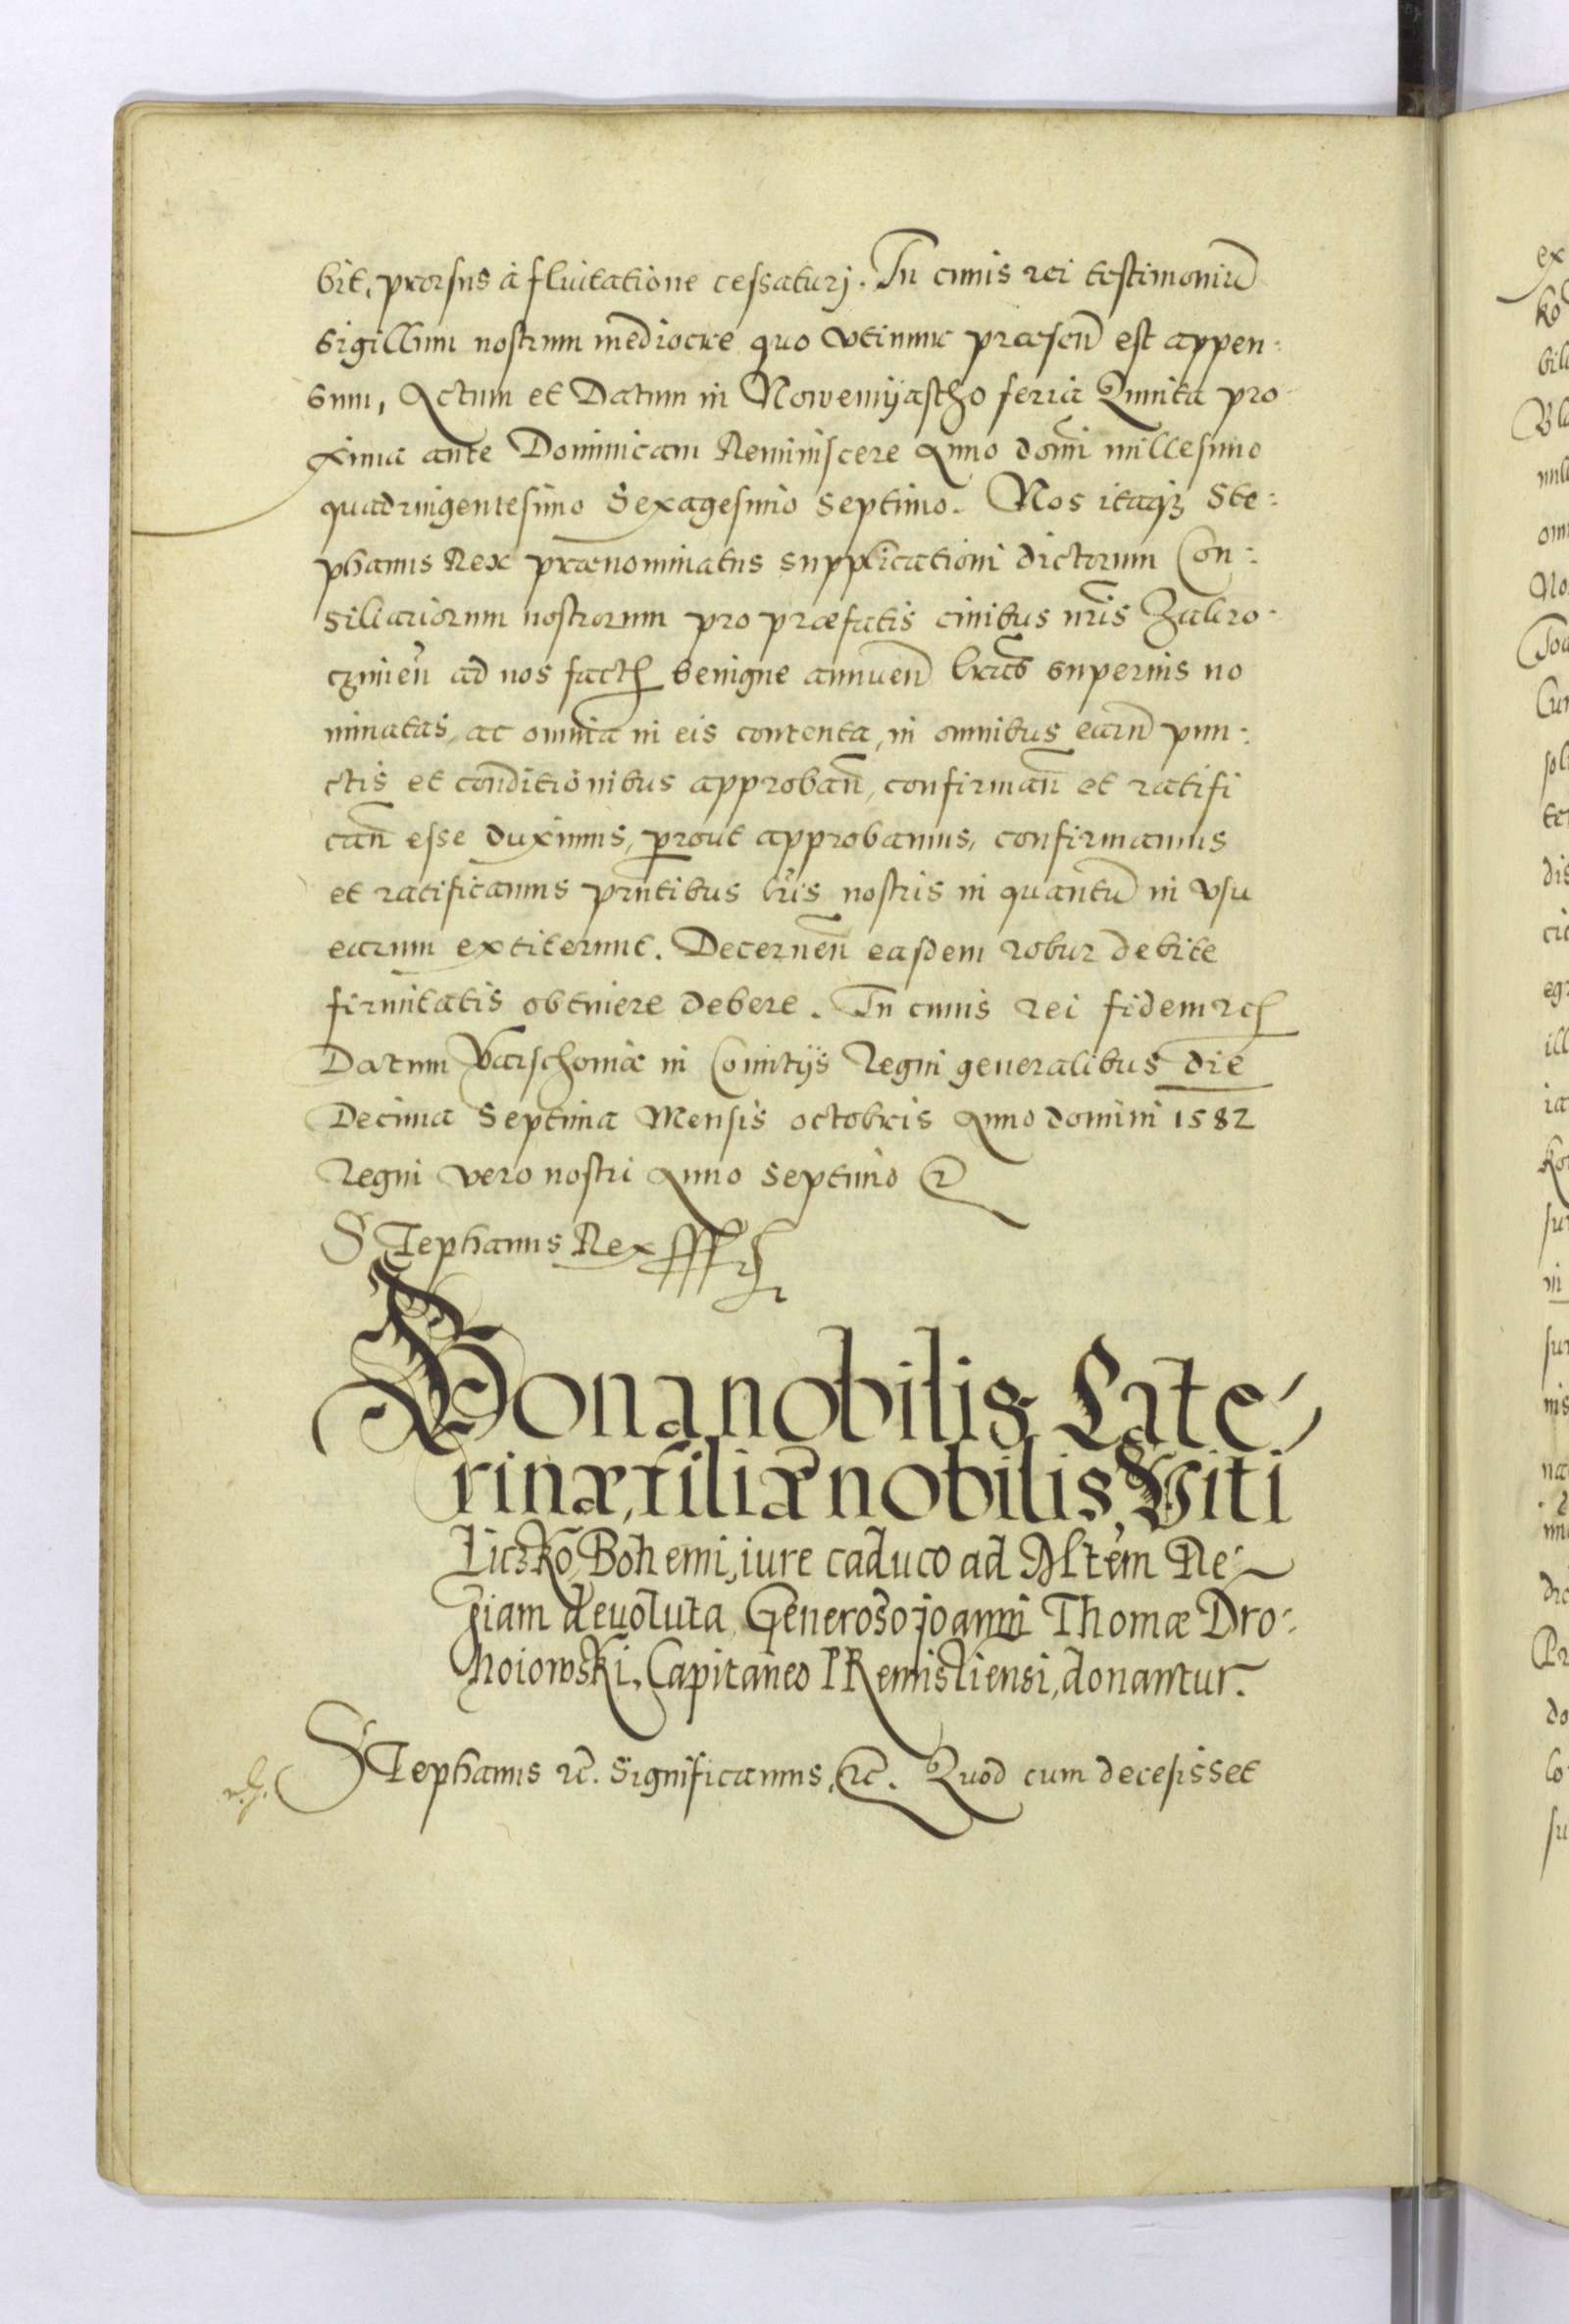 bit, prorsus à fluitatione cessaturj. In cuius rei testimoniū
Sigillum nostrum mediocre quo vtimur præsen̄ est appen:
sum, Actum et Datum in Nowemijastho feria Quinta pro
xima ante Dominicam Reminiscere Anno domī millesimo
quadringentesimo Sexagesimo Septimo. Nos itaqȝ Ste:
phanus Rex prænominatus supplicationi dictorum Con:
siliariorum nostrorum pro præfatis ciuibus nr̄is Zakro
czimien̄ ad nos fact benigne annuen̄ lr̄as superius no
minatas, ac omnia in eis contenta, in omnibus earū pun:
ctis et conditionibus approban̄, confirman̄ et ratifi
can̄ esse duximus, prout approbamus, confirmamus
et ratificamus prn̄tibus lr̄is nostris in quantū in vsu
earum extiterunt. Decernen̄ easdem robur debite
firmitatis obtinere debere. In cuius rei fidem etc
Datum Varschouiæ in Comitijs Regni generalibus die
Decima Septima Mensis octobris Anno domini 1582
Regni vero nostri Anno Septimo
Stephanus Rex
Bona nobilis Cate,
rinæ, filiæ nobilis Viti
Liczko Bohemi, iure caduco ad Mltem Re:
giam deuoluta, Generoso joanni Thomæ Dro:
hoiowski, Capitaneo PRemisliensi, donantur.
Stephanus &c. Significamus, &c. Quod cum decesisset